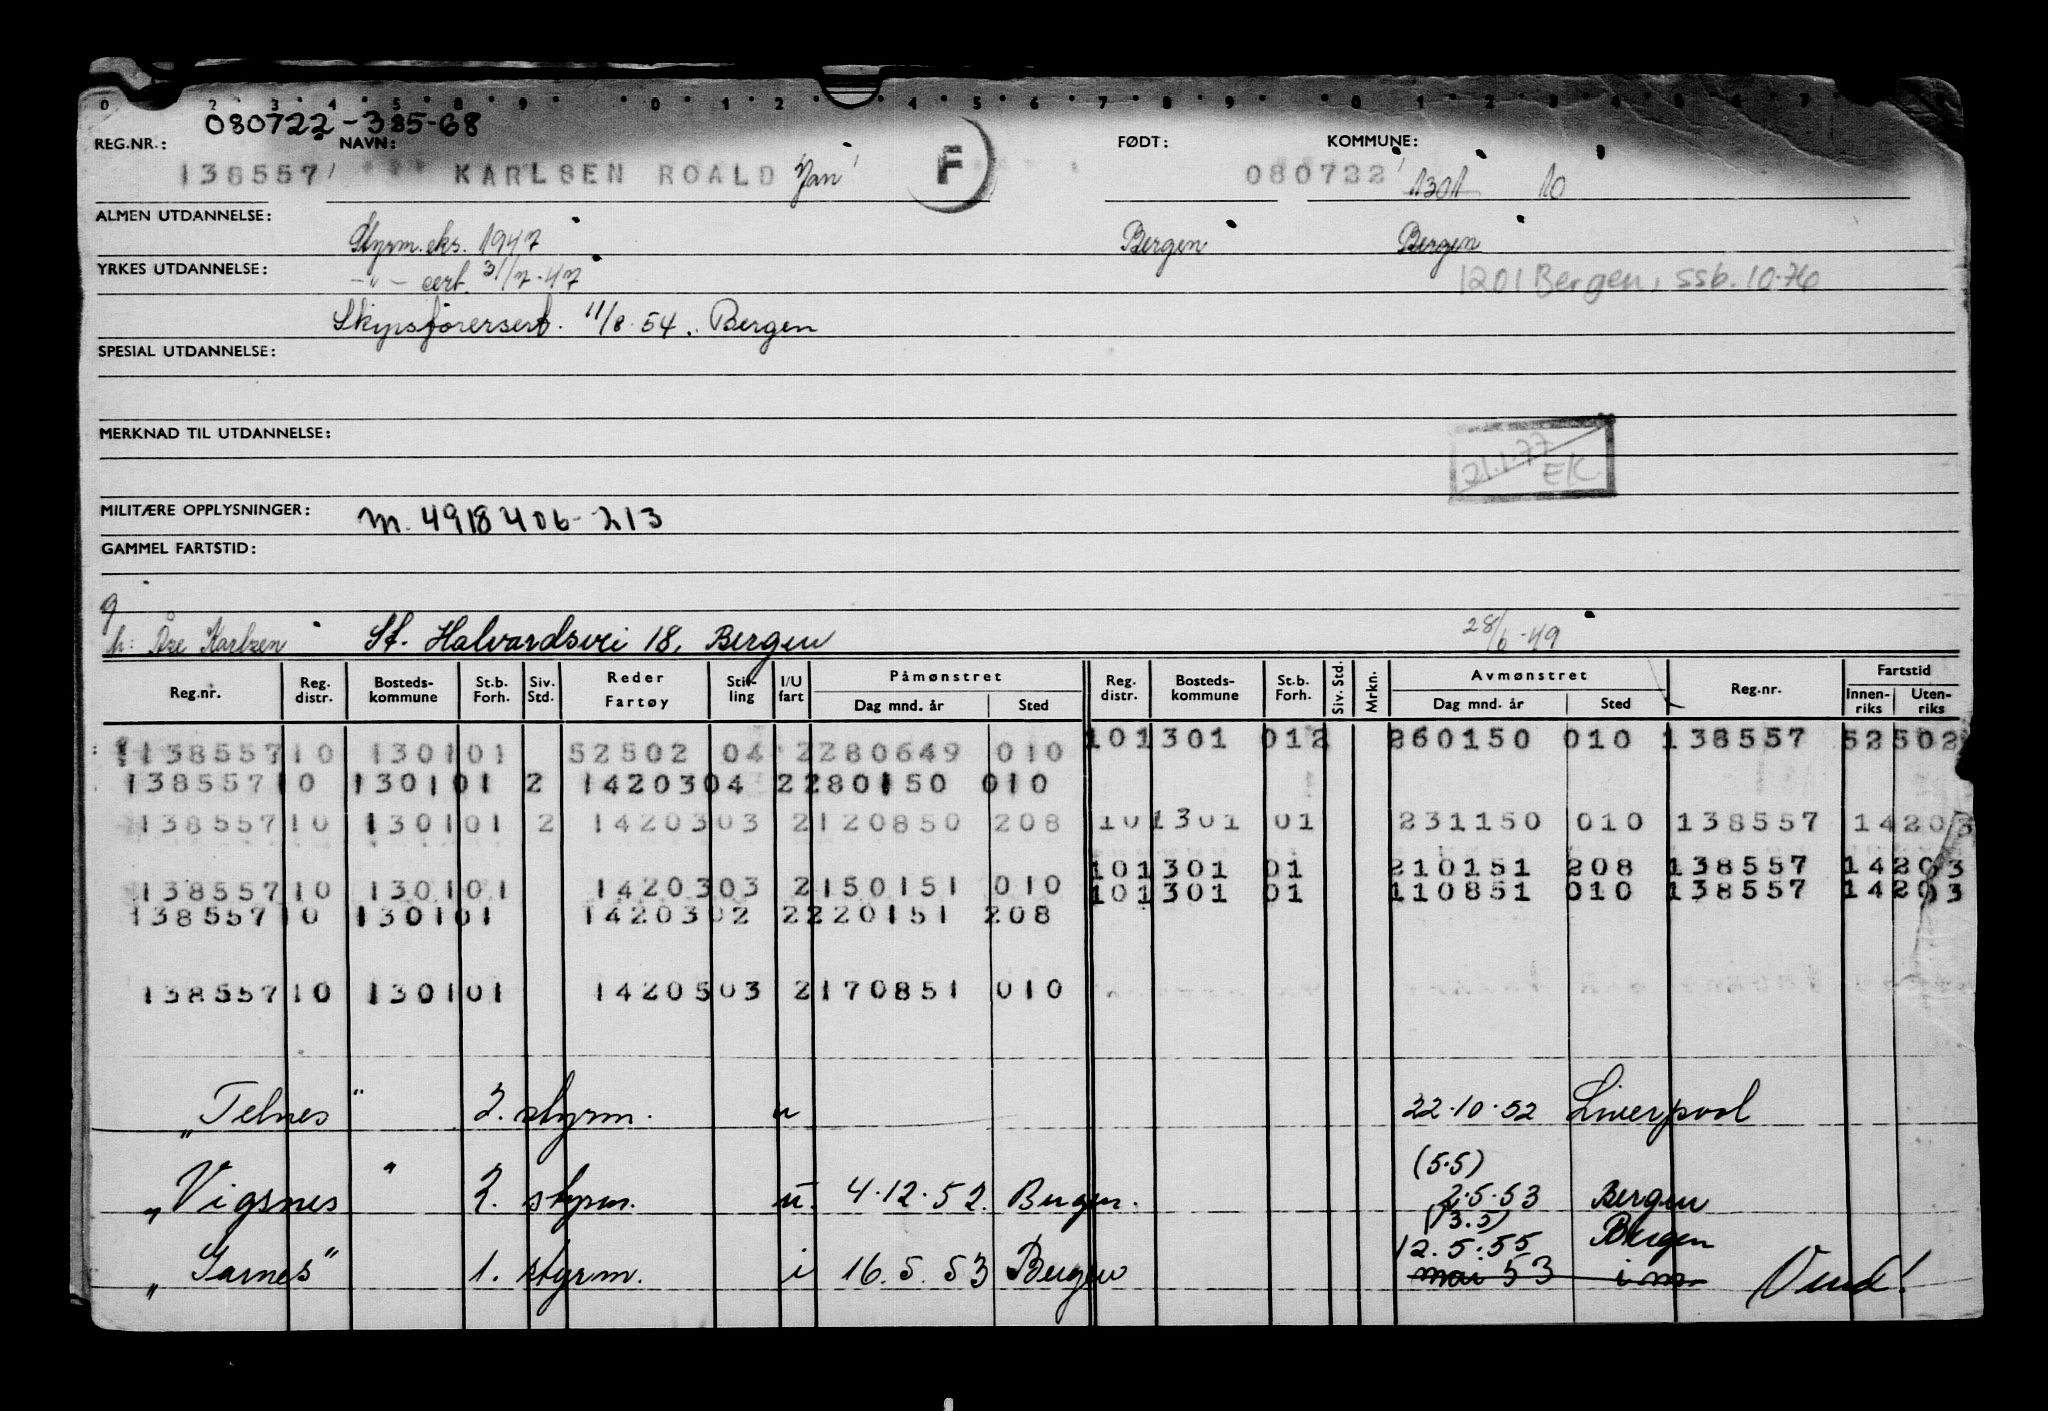 080722-385-68
REG.NR.: NAVN: FØDT: KOMMUNE:
138557 KARLSEN ROALD Jan F 080722 1301 10
ALMEN UTDANNELSE: Styrm.eks. 1947 Bergen Bergen
YRKES UTDANNELSE: -"- cert. 31/7-47 1201 Bergen, ssb. 10.76
Skipsførersert. 11/8-54. Bergen
SPESIAL UTDANNELSE:
MERKNAD TIL UTDANNELSE: 21.1.77 EK
MILITÆRE OPPLYSNINGER: M. 4918406-213
GAMMEL FARTSTID:
g
h: Åse Karlsen St. Halvardsvei 18, Bergen 28/6-49
Reg.nr. Reg. distr. Bosteds-kommune St.b. Forh. Siv. Std. Reder Fartøy Stilling I/U fart Påmønstret Dag mnd. år Sted Reg. distr. Bosteds-kommune St.b. Forh. Siv. Std. Mrkn. Avmønstret Dag mnd. år Sted Reg.nr. Fartstid Innen-riks Uten-riks
138557 10 1301 01 52502 04 2 280649 010 10 1301 01 2 260150 010 138557 52502
138557 10 1301 01 2 14203 04 2 280150 010
138557 10 1301 01 2 14203 03 2 120850 208 10 1301 01 231150 010 138557 14203
10 1301 01 210151 208 138557 14203
138557 10 1301 01 14203 03 2 150151 010 10 1301 01 110851 010 138557 14203
138557 10 1301 01 14203 02 2 220151 208
138557 10 1301 01 14205 03 2 170851 010
"Telnes" 2. styrm. u 22.10.52 Liverpool
(5.5)
"Vigsnes" 2. styrm. u. 4.12.52. Bergen. 2.5.53 Bergen
(13.5)
12.5.55 Bergen
"Garnes" 1. styrm. i 16.5.53 Bergen mai 53 i m Vend!